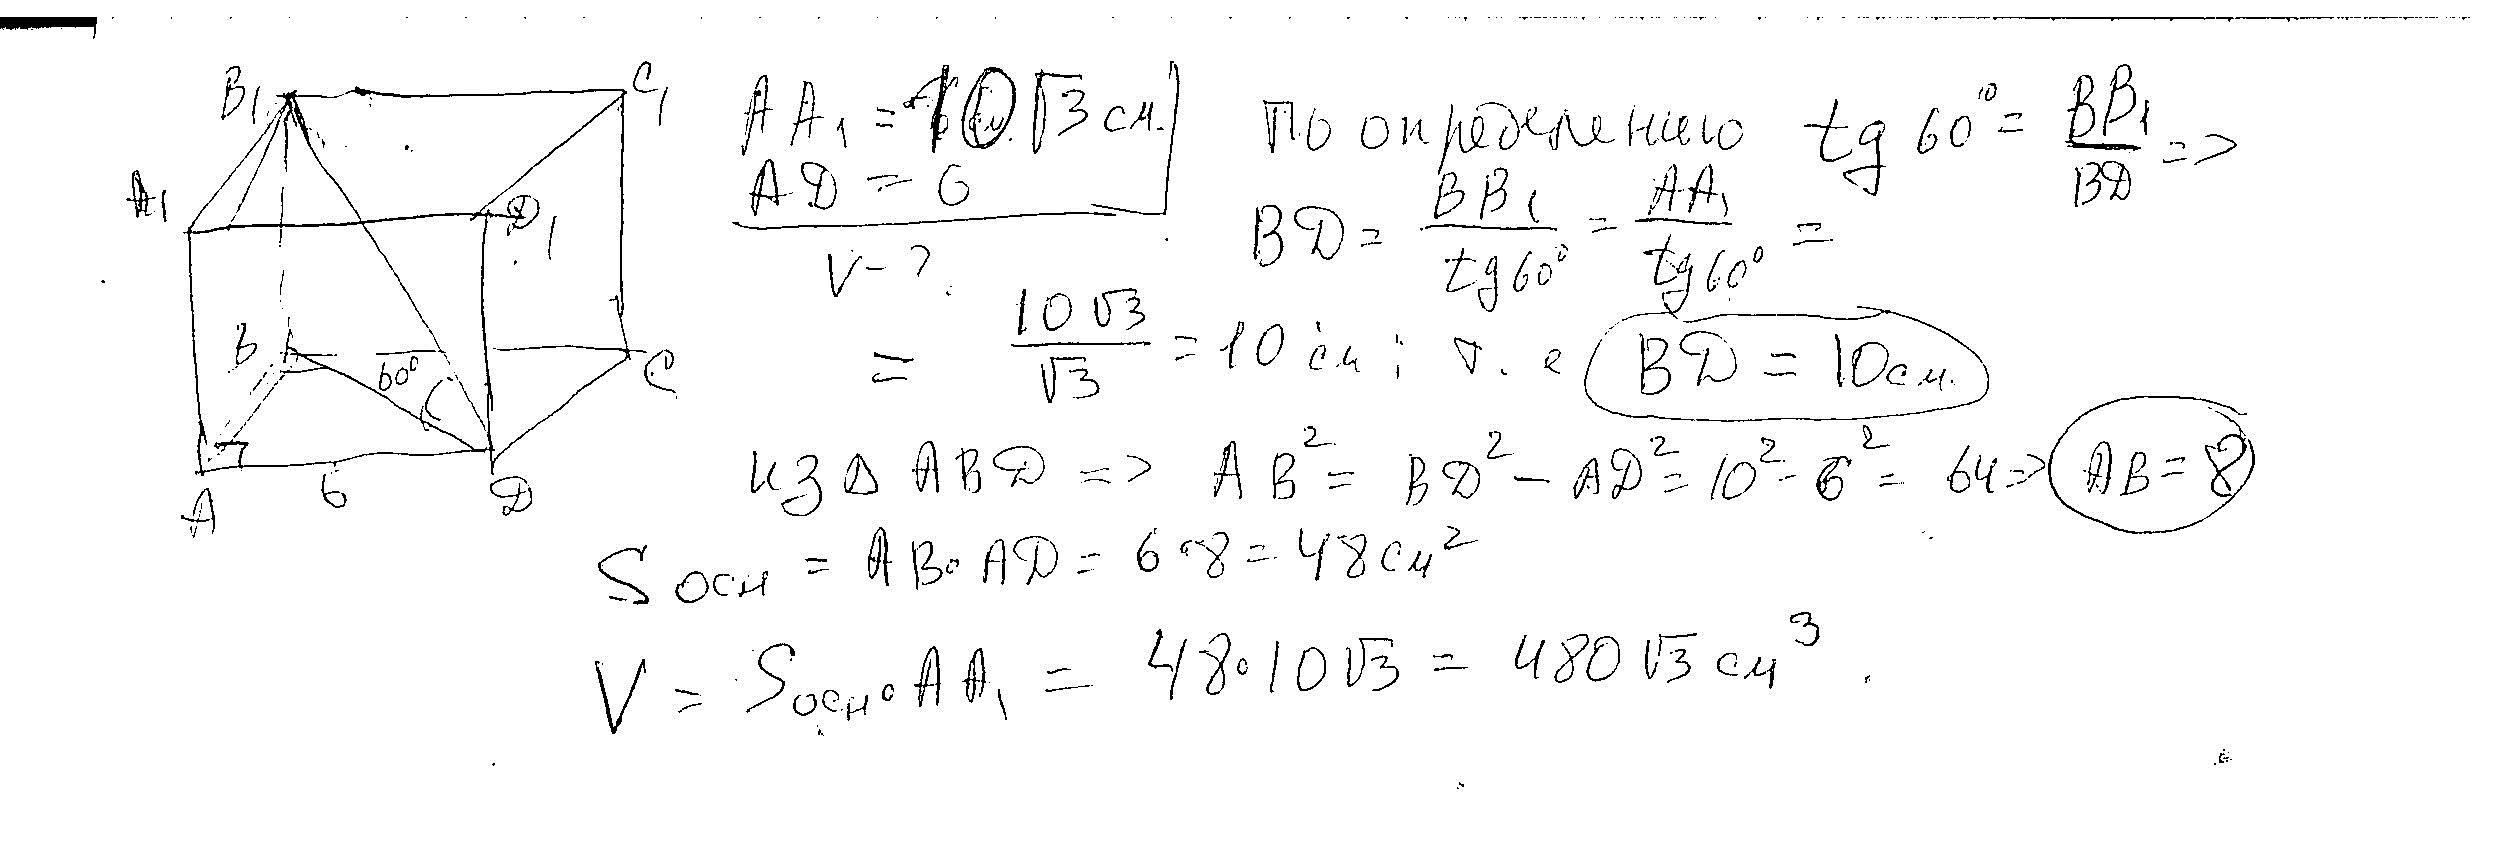 B₁ C₁
A₁ D₁
B 60° C
A 6 D
AA₁ = 10√3 см.
AD = 6
V - ?
По определению tg 60° = BB₁/BD =>
BD = BB₁/tg 60° = AA₁/tg 60° =
= 10√3/√3 = 10 см; т. е BD = 10 см.
из Δ ABD => AB² = BD² - AD² = 10² - 6² = 64 => AB = 8
Sосн = AB · AD = 6 · 8 = 48 см²
V = Sосн · AA₁ = 48 · 10√3 = 480√3 см³.